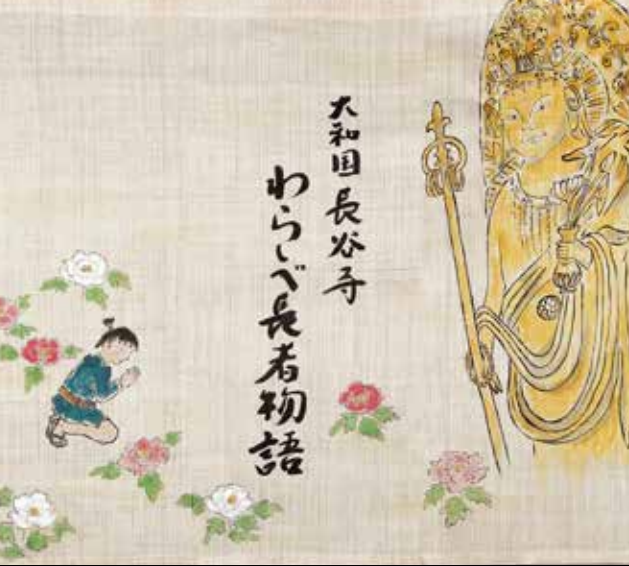 大和国 長谷寺
わらしべ長者物語